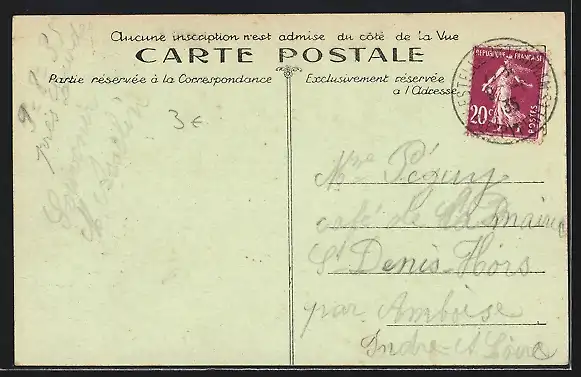 Aucune inscription n'est admise du côté de la Vue
CARTE POSTALE
Partie réservée à la Correspondance
Exclusivement réservée
a l'Adresse
REPUBLIQUE FRANÇAISE
20c
POSTES
35
3€
9-8-35
Mme Péguy
café de la Mairie
St Denis Hors
par Amboise
Indre et Loire